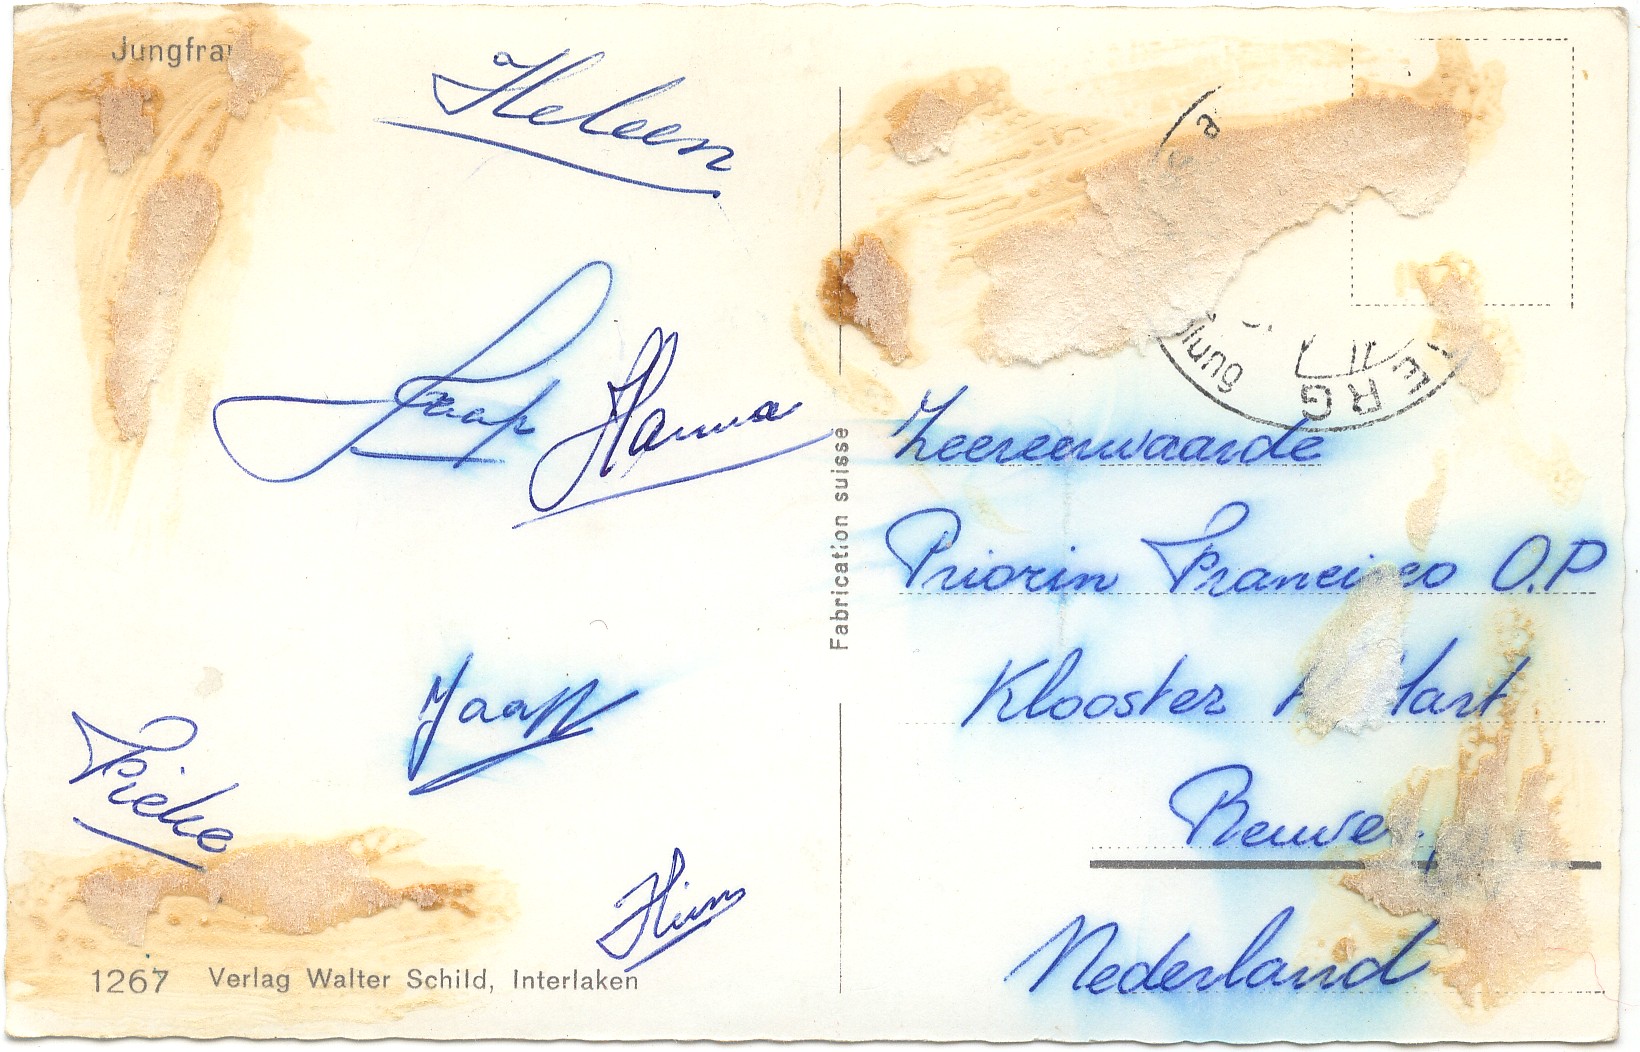 Jungfrau
Heleen
Jaap Hanna
Jaap
Fieke
Wim
1267 Verlag Walter Schild, Interlaken
Fabrication suisse
ERG
Zeereerwaarde
Priorin Francisco O.P
Klooster Hart
Nederland